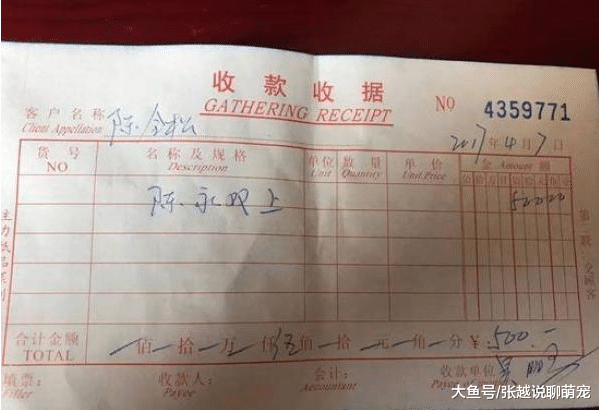 收款收据
GATHERING RECEIPT
№ 4359771
客户名称
Client Appellation
陈
2017年4月7日
货号
NO
名称及规格
Description
单位
Unit
数量
Quantity
单价
Unit.Price
金 Amount 额
佰拾万仟佰拾元角分
陈永 上
50000
第二联:交顾客
合计金额
TOTAL
佰拾万仟伍佰拾元角分¥:500.-
填票:
Filler
收款人:
Payee
会计:
Accountant
收款单位
大鱼号/张越说聊萌宠